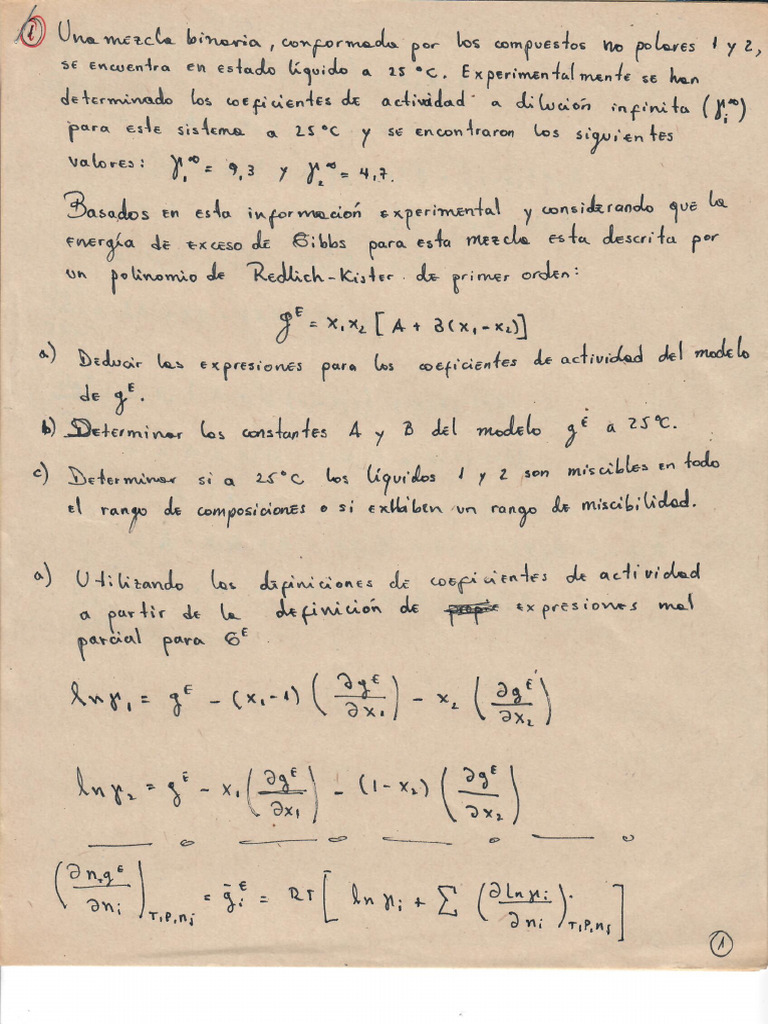 1 Una mezcla binaria, conformada por los compuestos no polares 1 y 2,
se encuentra en estado líquido a 25 °C. Experimentalmente se han
determinado los coeficientes de actividad a dilución infinita (γᵢ^∞)
para este sistema a 25 °C y se encontraron los siguientes
valores: γ₁^∞ = 9,3 y γ₂^∞ = 4,7.
Basados en esta información experimental y considerando que la
energía de exceso de Gibbs para esta mezcla esta descrita por
un polinomio de Redlich-Kister de primer orden:
g^E = x₁x₂ [A + B(x₁-x₂)]
a) Deducir las expresiones para los coeficientes de actividad del modelo
de g^E.
b) Determinar las constantes A y B del modelo g^E a 25°C.
c) Determinar si a 25°C los líquidos 1 y 2 son miscibles en todo
el rango de composiciones o si exhiben un rango de miscibilidad.
a) Utilizando las definiciones de coeficientes de actividad
a partir de la definición de expresiones mol
parcial para G^E
ln γ₁ = g^E - (x₁-1) (∂g^E/∂x₁) - x₂ (∂g^E/∂x₂)
ln γ₂ = g^E - x₁ (∂g^E/∂x₁) - (1-x₂) (∂g^E/∂x₂)
(∂n_T g^E/∂nᵢ)_T,P,nⱼ = ḡᵢ^E = RT [ln γᵢ + Σ (∂ln γᵢ/∂nᵢ)_T,P,nⱼ]
1